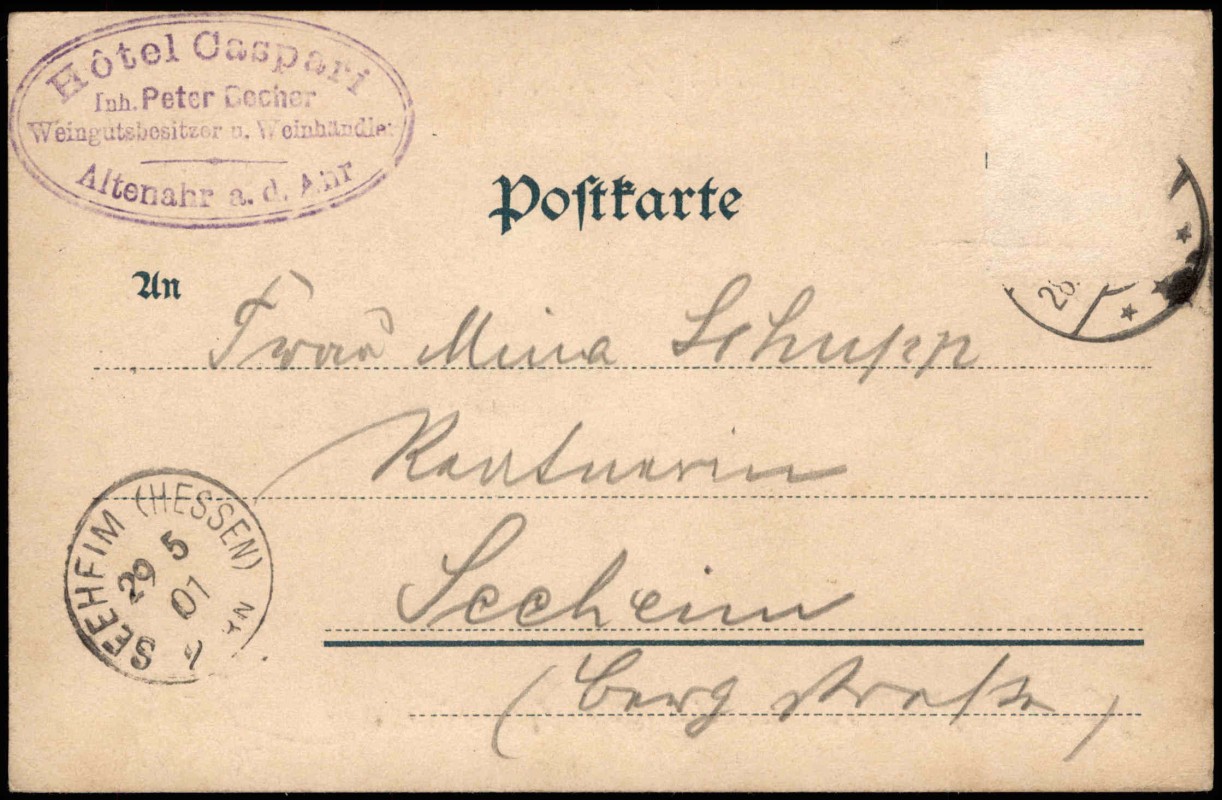 Hôtel Caspari
Inh. Peter Cocher
Weingutsbesitzer u. Weinhändler
Altenahr a. d. Ahr
Postkarte
An
Frau Mina Schupp
Rentnerin
Seeheim
(Bergstraße)
SEEHEIM (HESSEN)
29 5
07
28.